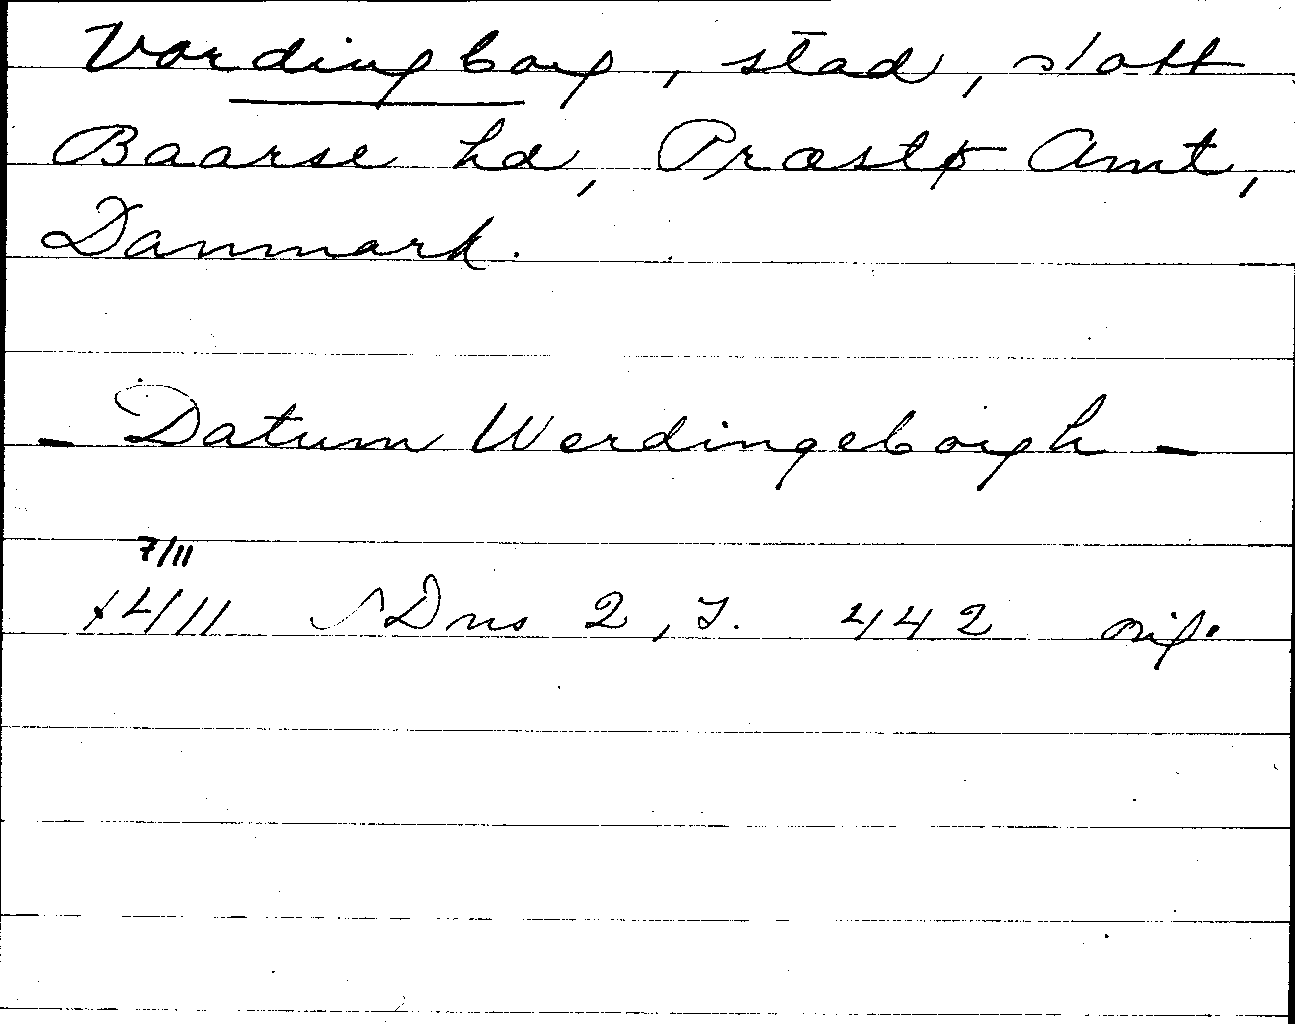 Vordingborg, stad, slott
Baarse hd, Præstø Amt,
Danmark.
- Datum Werdingeborgh -
7/11
1411 SDns 2, s. 442 orig.